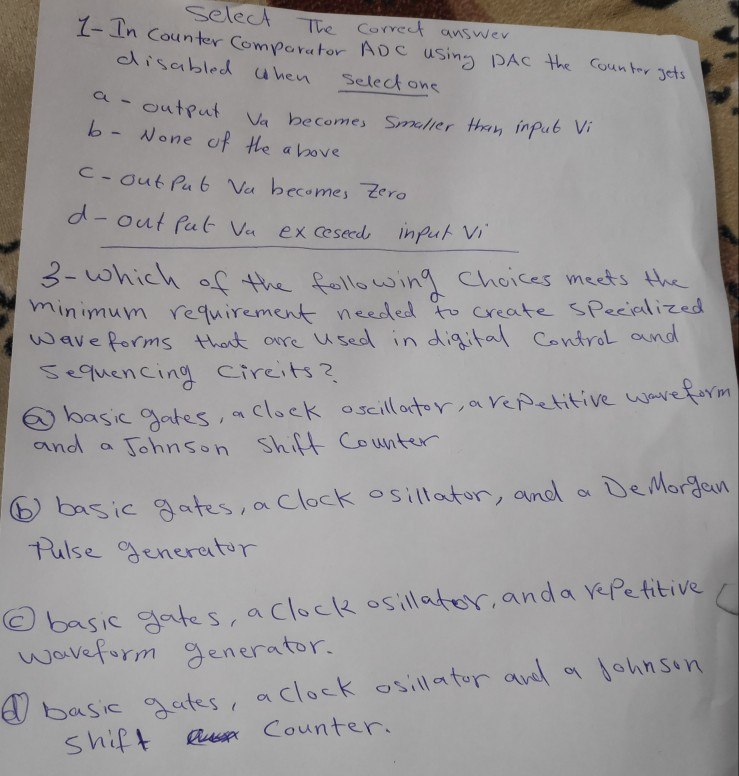 Select The Correct answer
1- In counter Comparator ADC using DAC the Counter gets
disabled when Select one
a - output Va becomes Smaller than input Vi
b - None of the above
c - output Va becomes Zero
d - output Va exceseed input Vi
3- Which of the following Choices meets the
minimum requirement needed to create specialized
waveforms that are used in digital Control and
Sequencing Circits?
a basic gates, a clock oscillator, a repetitive waveform
and a Johnson Shift Counter
b basic gates, a Clock osillator, and a DeMorgan
Pulse generator
c basic gates, a Clock osillator, and a repetitive
waveform generator.
d basic gates, a clock osillator and a Johnson
Shift Counter.